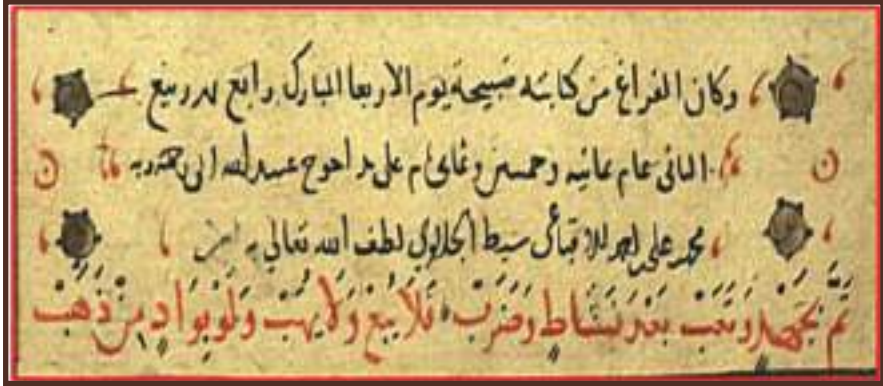 وكان الفراغ من كتابته صبيحة يوم الاربعا المبارك رابع شهر ربيع
الثاني عام ثمانيه وخمسين وثماىمام على يد احوج عبيد الله الى رحمة ربه
محمد علي سبط الجلالي لطف الله تعالي به
تَمَّ بجَهْدٍ وَتَعَبْ بَعْدَ نَشَاطٍ وَضَرَبْ فَلَا يُبَعْ وَلَا يُهَبْ وَلَوْ بِوَادٍ مِنْ ذَهَبْ